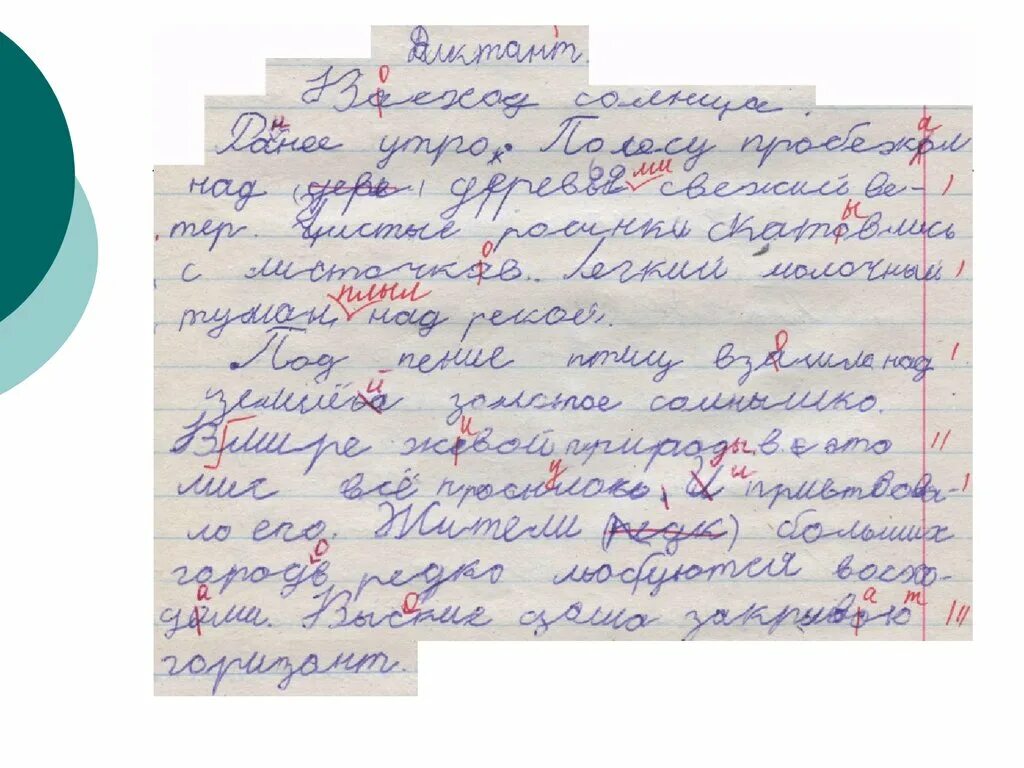 Диктант.
Васход солнца.
Ранее утро. Полесу пробежол
над (дере) деревья ми свежий ве-
тер. Чистые росинки скатовлись
с листочкав. Легкий молочный
туман плыл над рекой.
Под пение птиц взашла над
золотое солнышко.
В мире жевой природы в это
миг всё И
ло его. Жители (редк) больших
городв редко любуются восхо-
доми. дома
горизант.